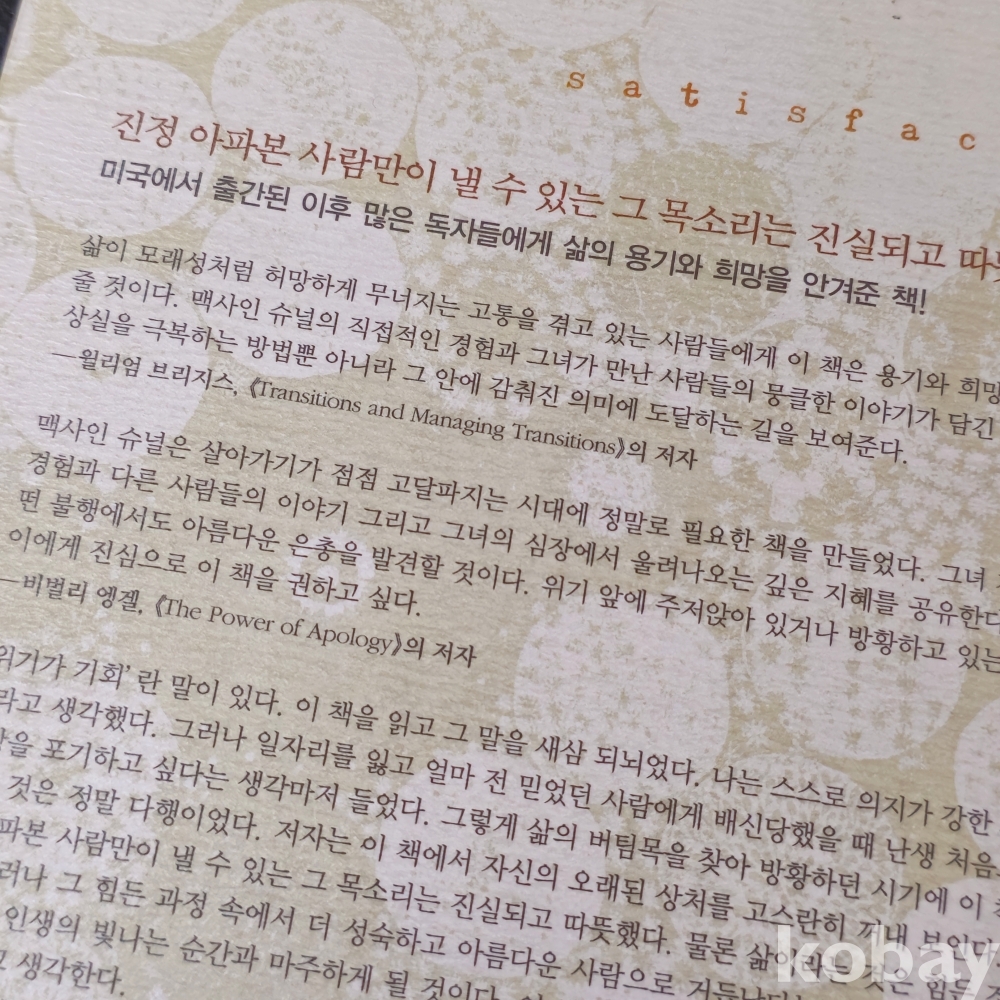 satisfac
진정 아파본 사람만이 낼 수 있는 그 목소리는 진실되고 따
미국에서 출간된 이후 많은 독자들에게 삶의 용기와 희망을 안겨준 책!
삶이 모래성처럼 허망하게 무너지는 고통을 겪고 있는 사람들에게 이 책은 용기와 희망
줄 것이다. 맥사인 슈널의 직접적인 경험과 그녀가 만난 사람들의 뭉클한 이야기가 담긴
상실을 극복하는 방법뿐 아니라 그 안에 감춰진 의미에 도달하는 길을 보여준다.
—윌리엄 브리지스, 《Transitions and Managing Transitions》의 저자
맥사인 슈널은 살아가기가 점점 고달파지는 시대에 정말로 필요한 책을 만들었다. 그녀
경험과 다른 사람들의 이야기 그리고 그녀의 심장에서 울러나오는 깊은 지혜를 공유한다
떤 불행에서도 아름다운 은총을 발견할 것이다. 위기 앞에 주저앉아 있거나 방황하고 있는
이에게 진심으로 이 책을 권하고 싶다.
—비벌리 엥겔, 《The Power of Apology》의 저자
위기가 기회'란 말이 있다. 이 책을 읽고 그 말을 새삼 되뇌었다. 나는 스스로 의지가 강한
라고 생각했다. 그러나 일자리를 잃고 얼마 전 믿었던 사람에게 배신당했을 때 난생 처음
을 포기하고 싶다는 생각마저 들었다. 그렇게 삶의 버팀목을 찾아 방황하던 시기에 이
것은 정말 다행이었다. 저자는 이 책에서 자신의 오래된 상처를 고스란히 꺼내 보인다.
파본 사람만이 낼 수 있는 그 목소리는 진실되고 따뜻했다. 물론 삶이라는 것은 힘든
러나 그 힘든 과정 속에서 더 성숙하고 아름다운 사람으로 거듭난다.
인생의 빛나는 순간과 마주하게 될 것이다.
고 생각한다.
kobay